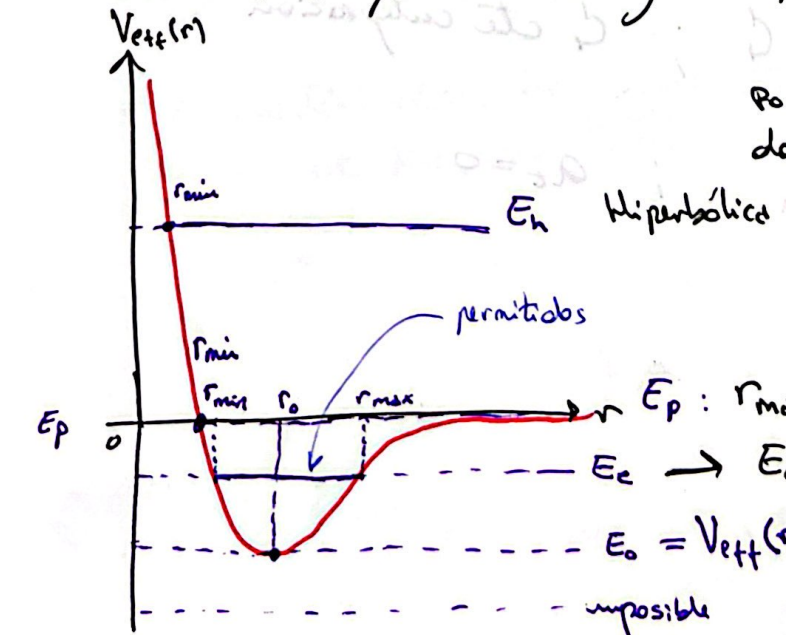 Veff(r)
Po
do
rmin
Eh Hiperbólica
permitidos
rmin
rmin r0 rmax
Ep 0 r Ep : rma
Ee → E
E0 = Veff(r
imposible